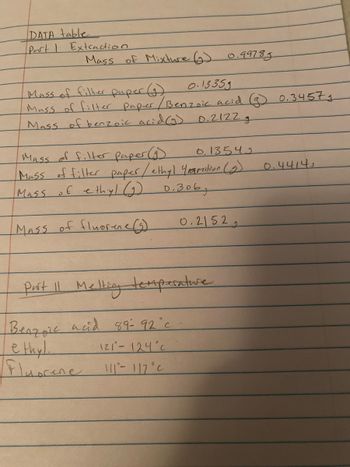 DATA table
Part I Extraction
Mass of Mixture (g) 0.9978g
Mass of filter paper (g) 0.1335g
Mass of filter paper/Benzoic acid (g) 0.3457g
Mass of benzoic acid (g) 0.2122g
Mass of filter paper (g) 0.1354g
Mass of filter paper/ethyl (g) 0.4414g
Mass of ethyl (g) 0.306g
Mass of fluorene (g) 0.2152g
Part II Melting temperature
Benzoic acid 89°-92°c
ethyl. 121°-124°c
Fluorene 111°-117°c